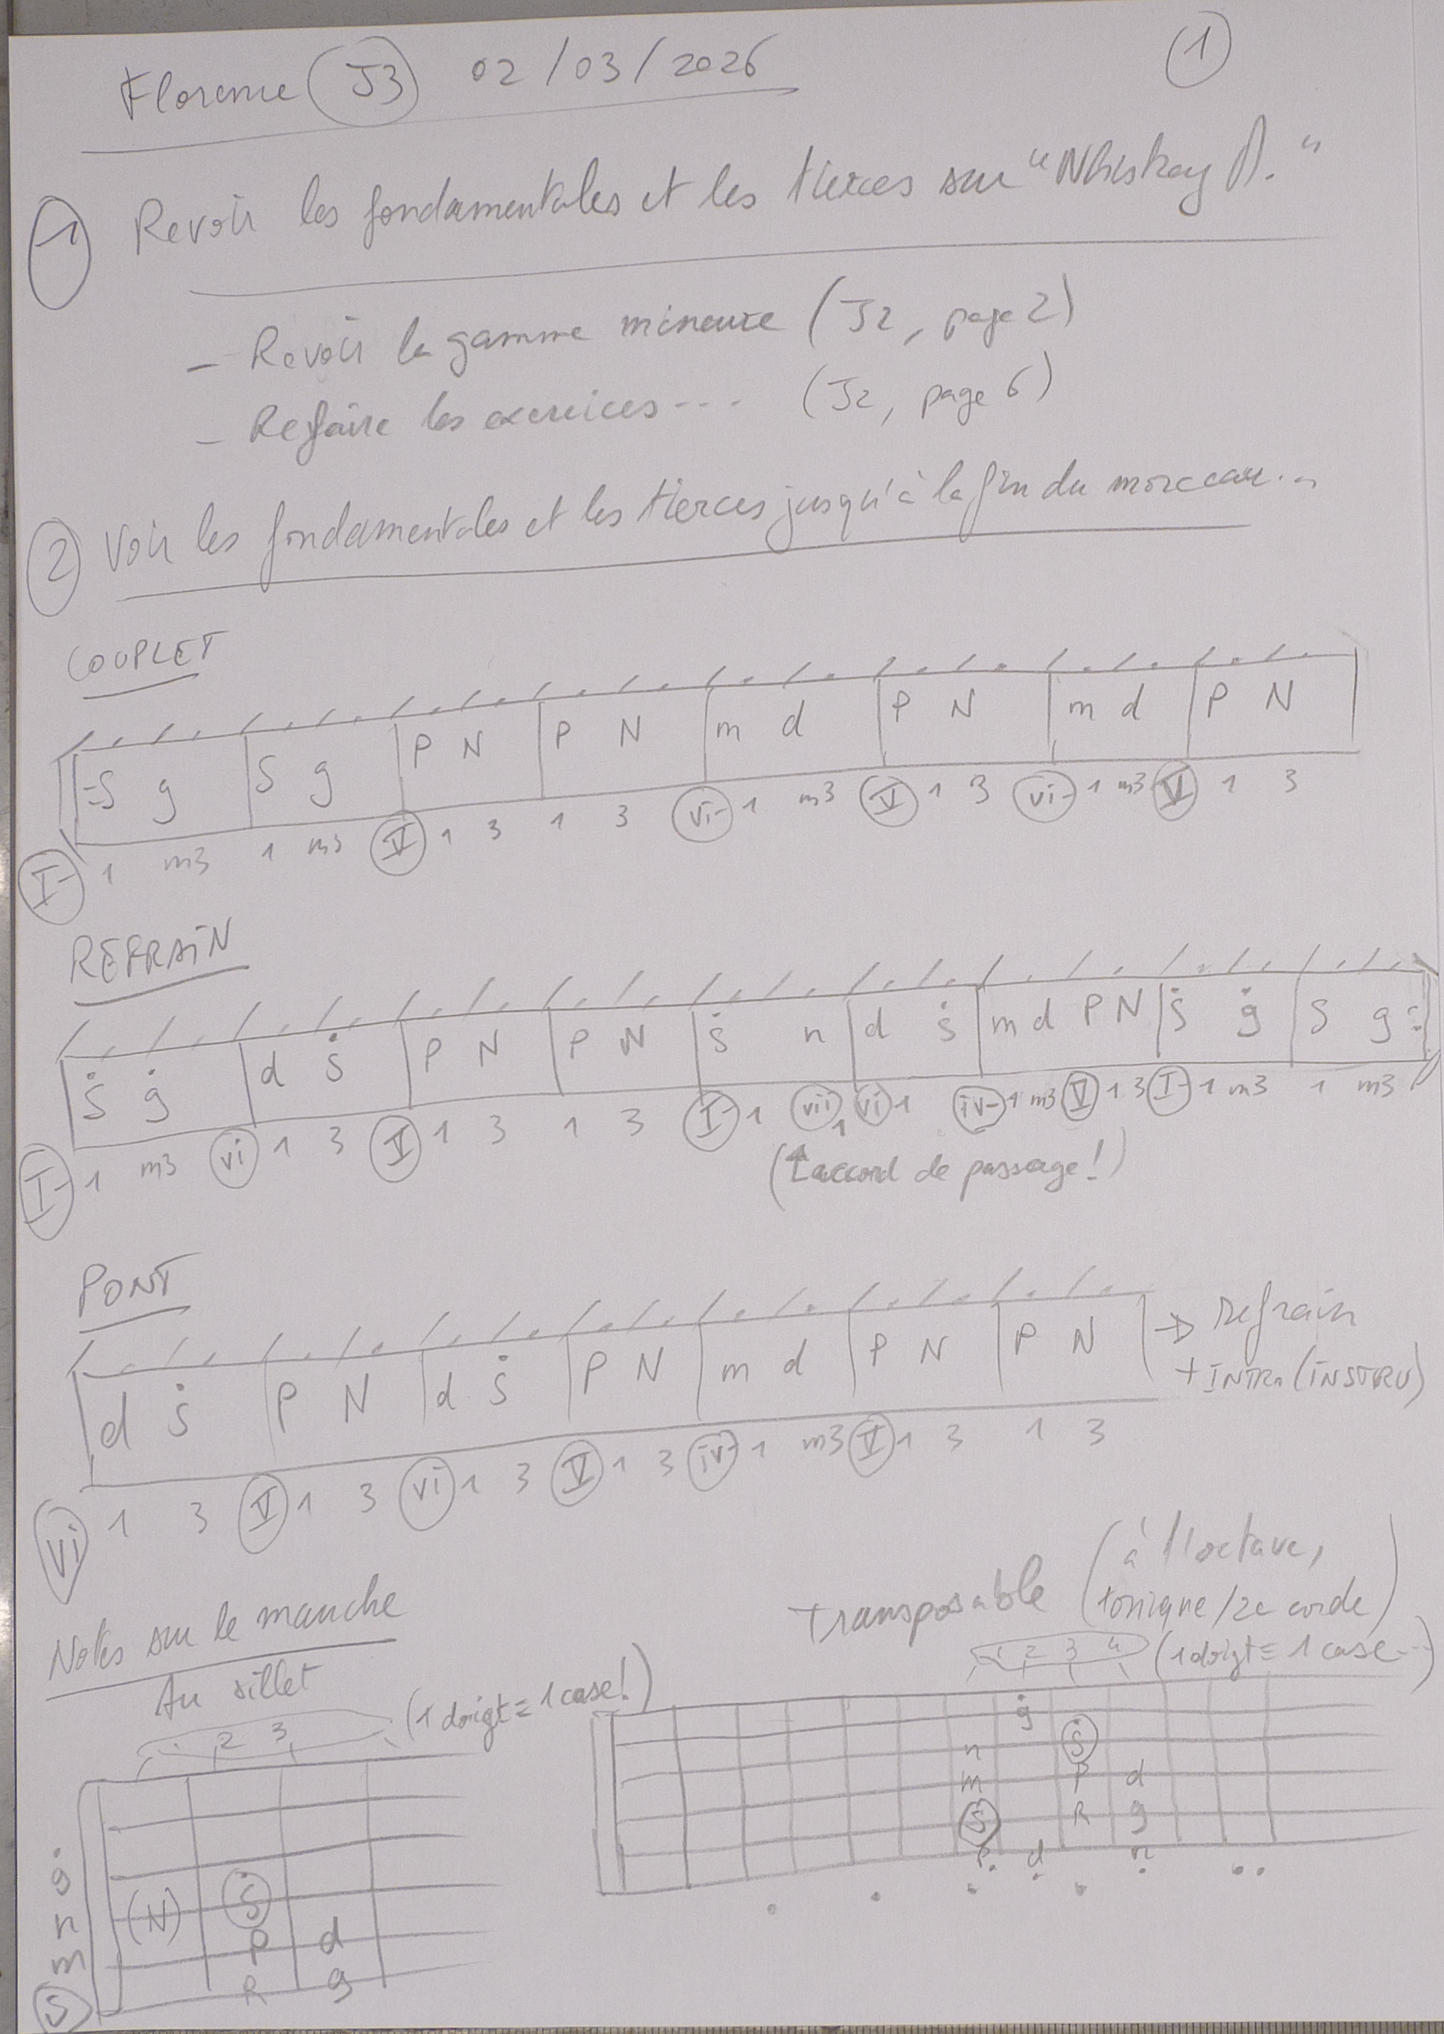 Florence J3 02/03/2026
1
1 Revoir les fondamentales et les tierces sur "Whiskey A."
- Revoir la gamme mineure (J2, page 2)
- Refaire les exercices... (J2, page 6)
2 Voir les fondamentales et les tierces jusqu'à la fin du morceau...
COUPLET
S g S g P N P N m d P N m d P N
I- 1 m3 1 m3 V 1 3 1 3 vi- 1 m3 V 1 3 vi- 1 m3 V 1 3
REFRAIN
Ṡ ġ d Ṡ P N P N Ṡ n d Ṡ m d P N Ṡ ġ S g
I- 1 m3 vi 1 3 V 1 3 1 3 I- 1 vii 1 vi 1 iv- 1 m3 V 1 3 I- 1 m3 1 m3
(accord de passage!)
PONT
d Ṡ P N d Ṡ P N m d P N P N → Refrain
+ INTRO (INSTRU)
vi 1 3 V 1 3 vi 1 3 V 1 3 iv- 1 m3 V 1 3 1 3
Notes sur le manche
Au sillet
(1 doigt = 1 case!)
2 3
ġ
n (N) Ṡ
m P d
S R g
Transposable (à l'octave,
tonique/2e corde)
1 2 3 4 (1 doigt = 1 case...)
ġ
n Ṡ
m P d
S R g
P d n